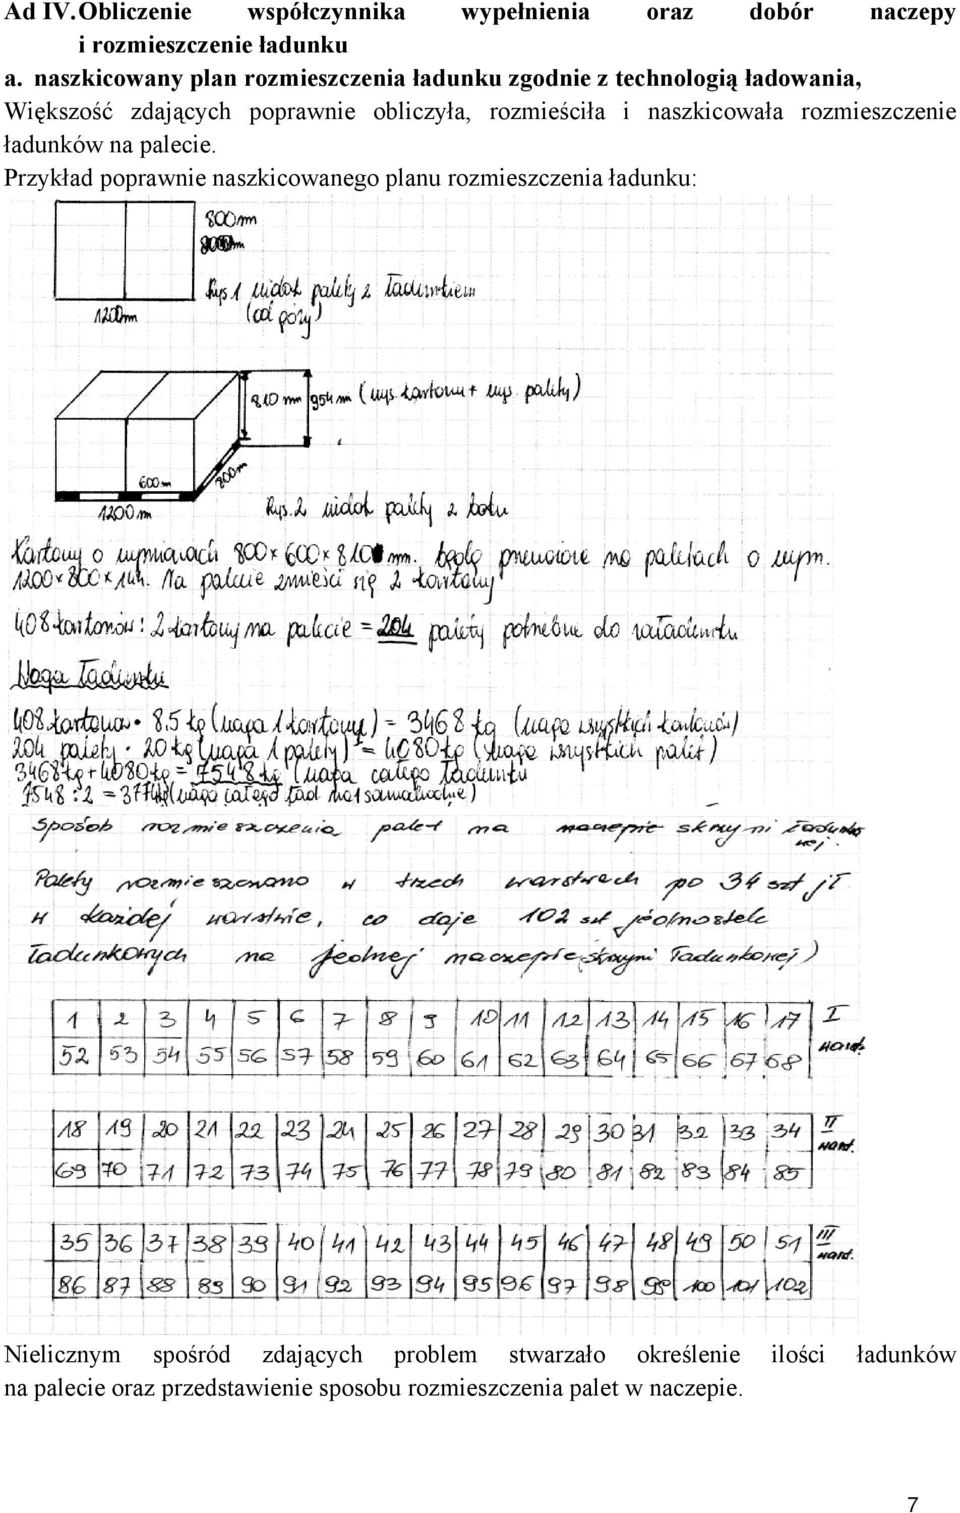 Ad IV. Obliczenie współczynnika wypełnienia oraz dobór naczepy
i rozmieszczenie ładunku
a. naszkicowany plan rozmieszczenia ładunku zgodnie z technologią ładowania,
Większość zdających poprawnie obliczyła, rozmieściła i naszkicowała rozmieszczenie
ładunków na palecie.
Przykład poprawnie naszkicowanego planu rozmieszczenia ładunku:
800mm
1200mm
Rys 1 widok palety z ładunkiem
(od góry)
810 mm 954 mm (wys. kartonu + wys. palety)
600mm
800m
1200mm
Rys. 2 widok palety z boku
Kartony o wymiarach 800 x 600 x 810 mm. będą przewożone na paletach o wym.
1200 x 800 x 144. Na palecie zmieści się 2 kartony
408 kartonów : 2 kartony na palecie = 204 palety potrzebne do załadunku
Waga ładunku
408 kartonów • 8,5 kg (waga 1 kartonu) = 3468 kg (waga wszystkich kartonów)
204 palety • 20 kg (waga 1 palety) = 4080 kg (waga wszystkich palet)
3468 kg + 4080 kg = 7548 kg (waga całego ładunku
7548 : 2 = 3774kg (waga całego ład na 1 samochodzie)
Sposób rozmieszczenia palet na naczepie skrzyni ładunko
wej.
Palety rozmieszczono w trzech warstwach po 34 szt jł
w każdej warstwie, co daje 102 szt jednostek
ładunkowych na jednej naczepie (skrzyni ładunkowej)
1 2 3 4 5 6 7 8 9 10 11 12 13 14 15 16 17 I
warst.
52 53 54 55 56 57 58 59 60 61 62 63 64 65 66 67 68
18 19 20 21 22 23 24 25 26 27 28 29 30 31 32 33 34 II
warst.
69 70 71 72 73 74 75 76 77 78 79 80 81 82 83 84 85
35 36 37 38 39 40 41 42 43 44 45 46 47 48 49 50 51 III
warst.
86 87 88 89 90 91 92 93 94 95 96 97 98 99 100 101 102
Nielicznym spośród zdających problem stwarzało określenie ilości ładunków
na palecie oraz przedstawienie sposobu rozmieszczenia palet w naczepie.
7